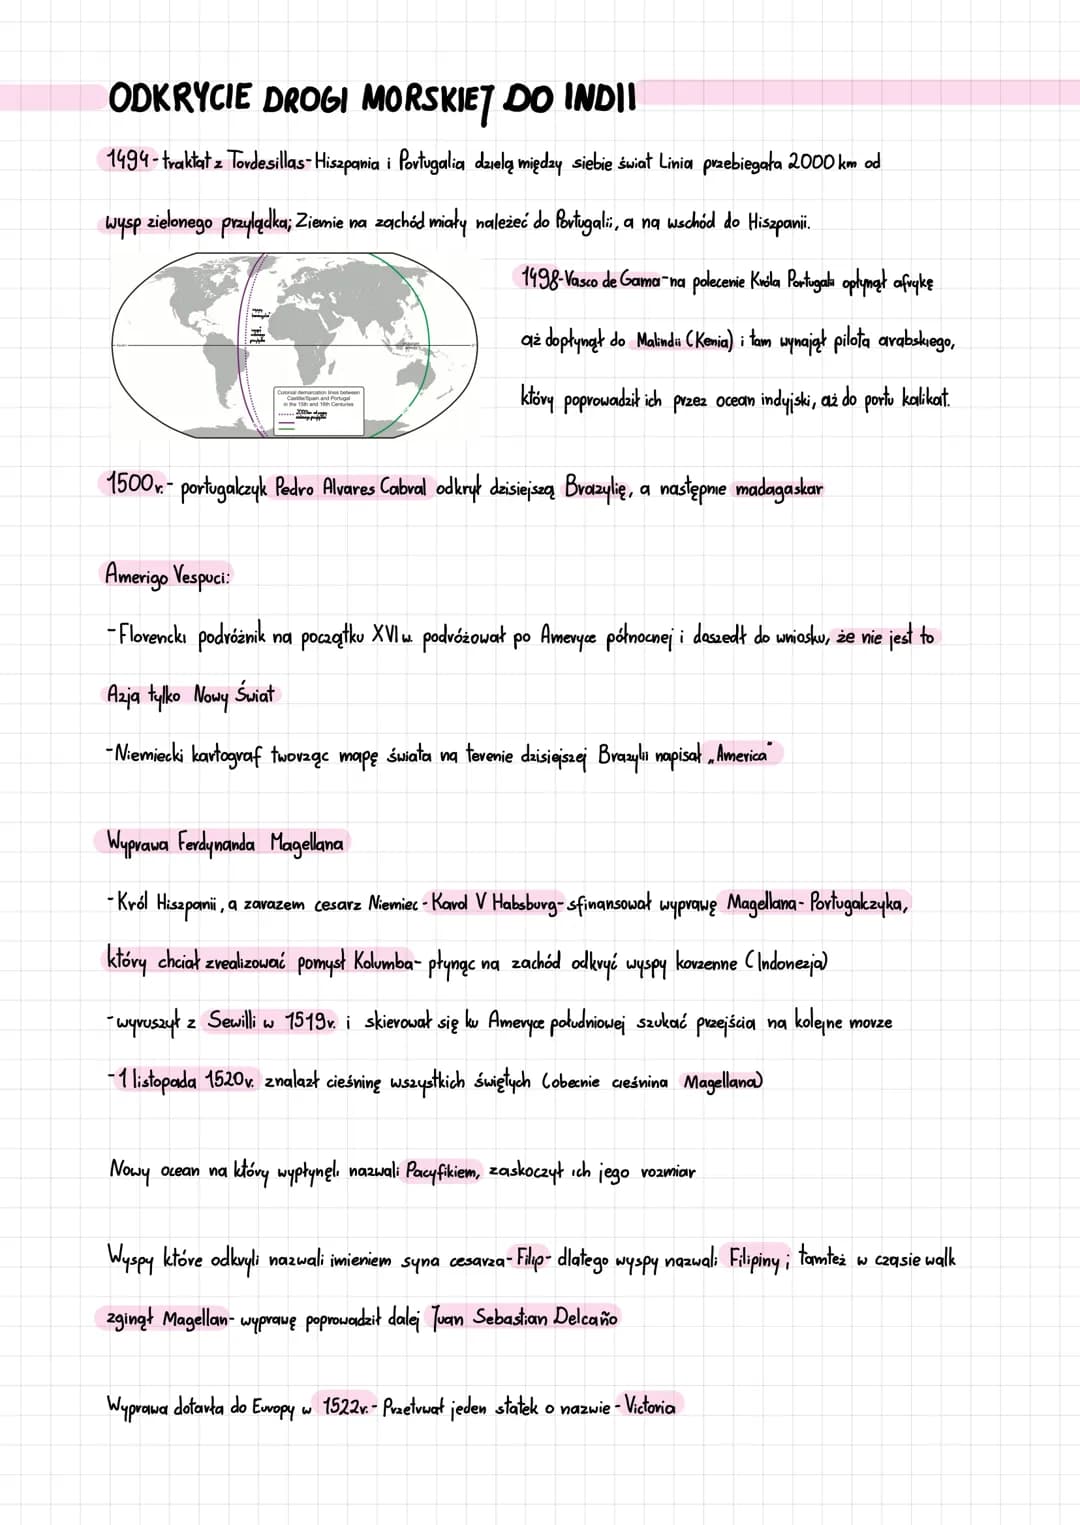 ODKRYCIE DROGI MORSKIEJ DO INDII
1494-traktat z Tordesillas-Hiszpania i Portugalia dzielą między siebie świat Linia przebiegała 2000 km od
wysp zielonego przylądka; Ziemie na zachód miały należeć do Portugalii, a na wschód do Hiszpanii.
1498-Vasco de Gama-na polecenie Króla Portugali opłynął afrykę
aż dopłynął do Malindii (Kenia) i tam wynajął pilota arabskiego,
który poprowadził ich przez ocean indyjski, aż do portu kalikat.
Colonial demarcation lines between
Castille/Spain and Portugal
in the 15th and 16th Centuries
1500r.- portugalczyk Pedro Alvares Cabral odkrył dzisiejszą Brazylię, a następnie madagaskar
Amerigo Vespuci:
-Florencki podróżnik na początku XVI w. podróżował po Ameryce północnej i doszedł do wniosku, że nie jest to
Azja tylko Nowy Świat
-Niemiecki kartograf tworząc mapę świata na terenie dzisiejszej Brazylii napisał „America"
Wyprawa Ferdynanda Magellana
-Król Hiszpanii, a zarazem cesarz Niemiec - Karol V Habsburg- sfinansował wyprawę Magellana- Portugalczyka,
który chciał zrealizować pomysł Kolumba- płynąc na zachód odkryć wyspy korzenne (Indonezja)
-wyruszył z Sewilli w 1519r. i skierował się ku Ameryce południowej szukać przejścia na kolejne morze
-1 listopada 1520r. znalazł cieśninę wszystkich świętych (obecnie cieśnina Magellana)
Nowy ocean na który wypłynęli nazwali Pacyfikiem, zaskoczył ich jego rozmiar
Wyspy które odkryli nazwali imieniem syna cesarza- Filip- dlatego wyspy nazwali Filipiny; tamteż w czasie walk
zginął Magellan- wyprawę poprowadził dalej Juan Sebastian Delcaño
Wyprawa dotarła do Europy w 1522r.- Przetrwał jeden statek o nazwie - Victoria